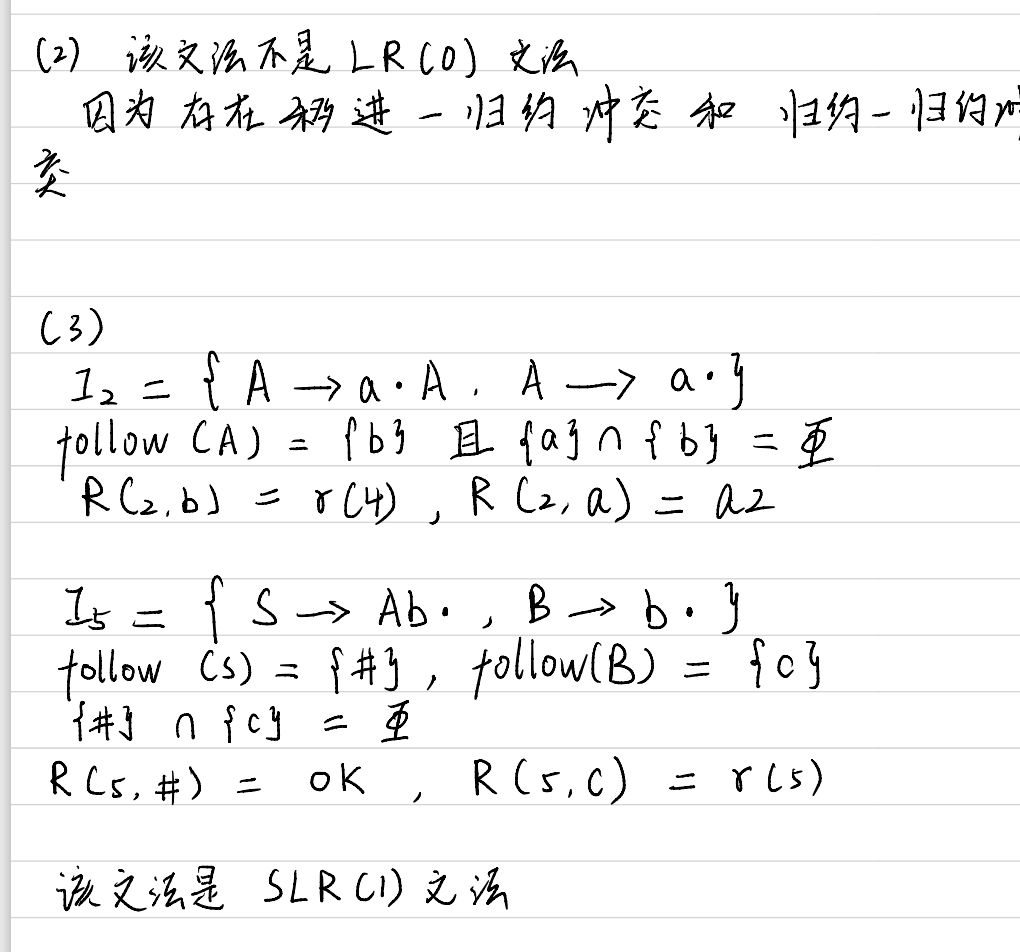 (2) 该文法不是LR(0)文法
因为存在移进-归约冲突和归约-归约冲
突
(3)
I₂ = { A → a·A, A → a·}
follow (A) = {b} 且 {a} ∩ {b} = Φ
R(2,b) = r(4), R(2,a) = a2
I₅ = { S → Ab·, B → b·}
follow (S) = {#}, follow(B) = {c}
{#} ∩ {c} = Φ
R(5,#) = OK, R(5,c) = r(5)
该文法是 SLR(1)文法